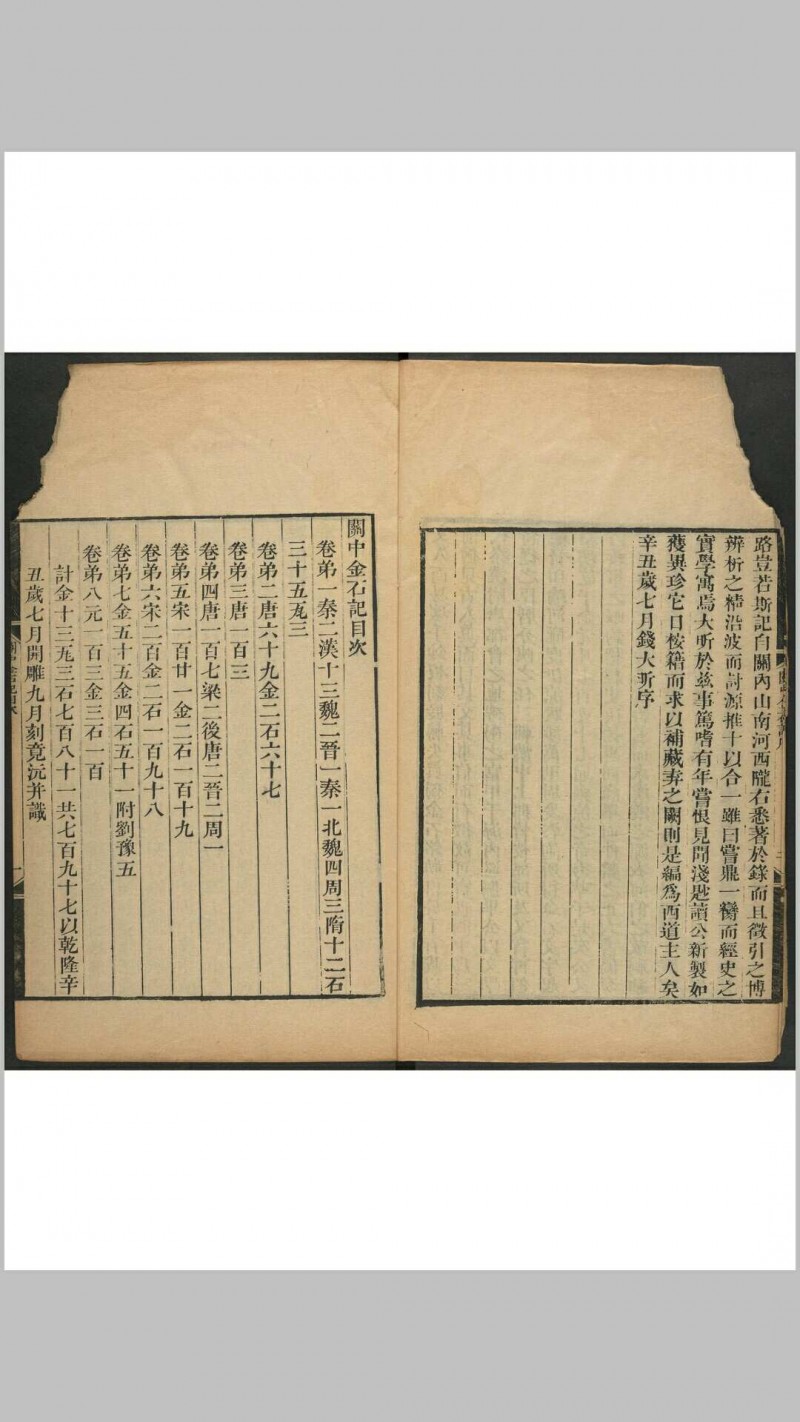 路豈若斯記自關內山南河西隴右悉著於錄而且徵引之博
辨析之精沿波而討源推十以合一雖曰嘗鼎一臠而經史之
實學寓焉大昕於兹事篤嗜有年嘗恨見聞淺尟讀公新製如
獲異珍它日按籍而求以補藏弆之闕則是編爲西道主人矣
辛丑歲七月錢大昕序
關中金石記目次
卷弟一秦二漢十三魏二晉一秦一北魏四周三隋十二石
三十五瓦三
卷弟二唐六十九金二石六十七
卷弟三唐一百三
卷弟四唐一百七梁二後唐二晉二周一
卷弟五宋一百廿一金二石一百十九
卷弟六宋二百金二石一百九十八
卷弟七金五十五金四石五十一附劉豫五
卷弟八元一百三金三石一百
計金十三瓦三石七百八十一共七百九十七以乾隆辛
丑歲七月開雕九月刻竟沅并識